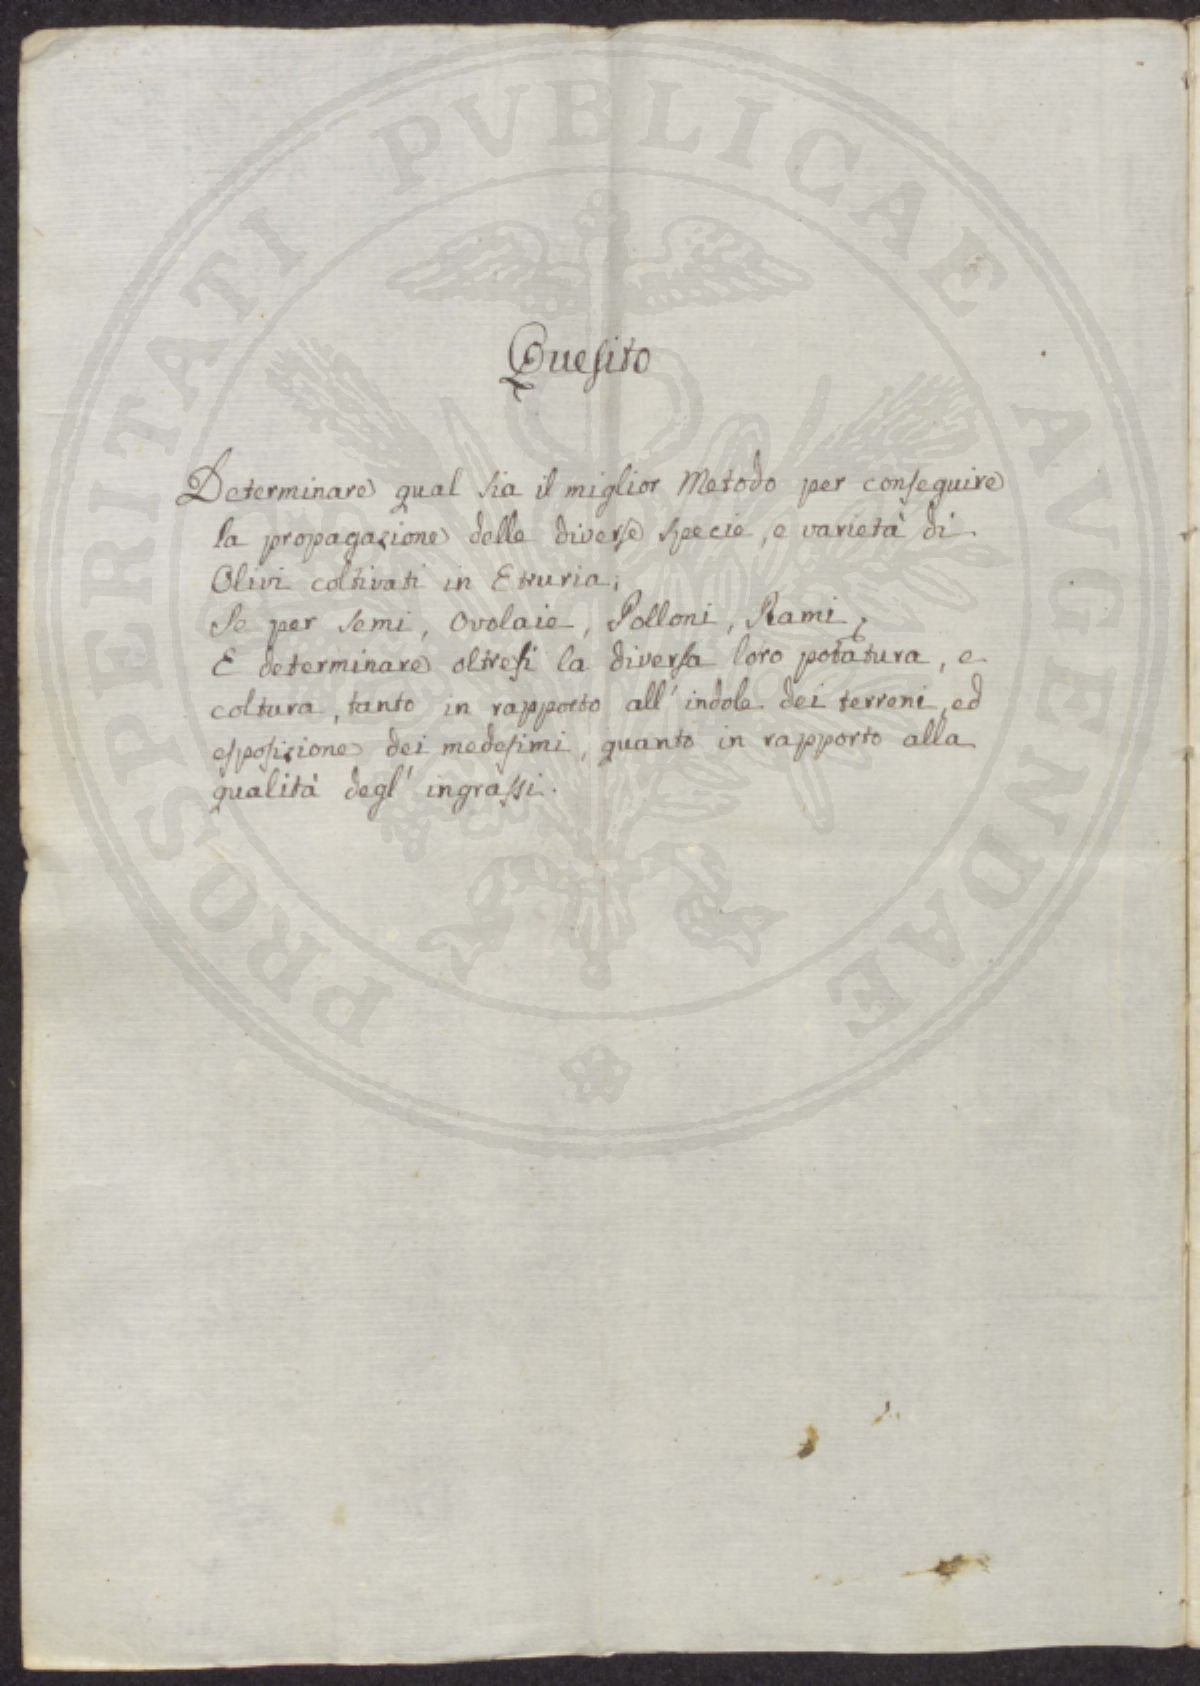 Quesito
Determinare qual sia il miglior Metodo per conseguire
la propagazione delle diverse specie, e varietà di
Olivi coltivati in Etruria;
Se per semi, Ovolaie, Polloni, Rami;
E determinare oltresì la diversa loro potatura, e
coltura, tanto in rapporto all' indole dei terreni, ed
esposizione dei medesimi, quanto in rapporto alla
qualità degl' ingrassi.
PROSPERITATI PUBLICAE AUGENDAE